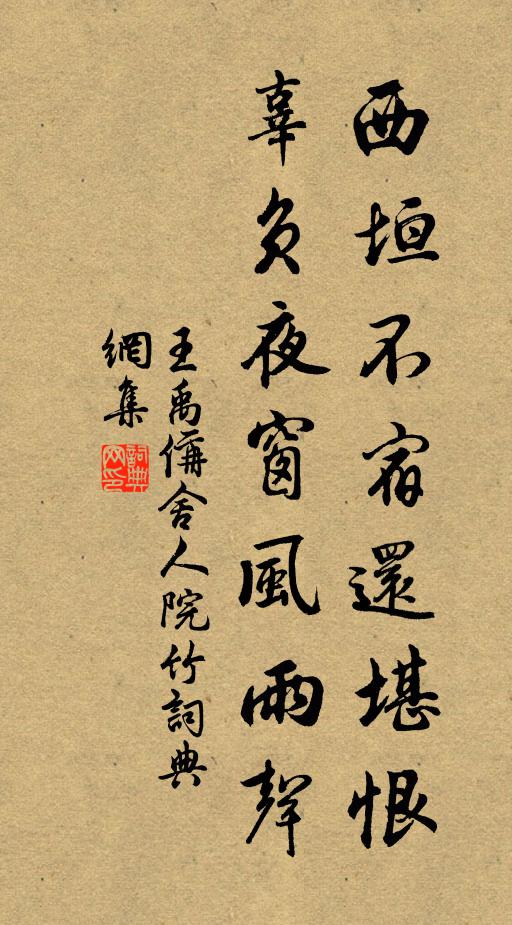 西垣不宿還堪恨
辜負夜窗風雨聲
王禹偁舍人院竹詞典
網集
詞典網印